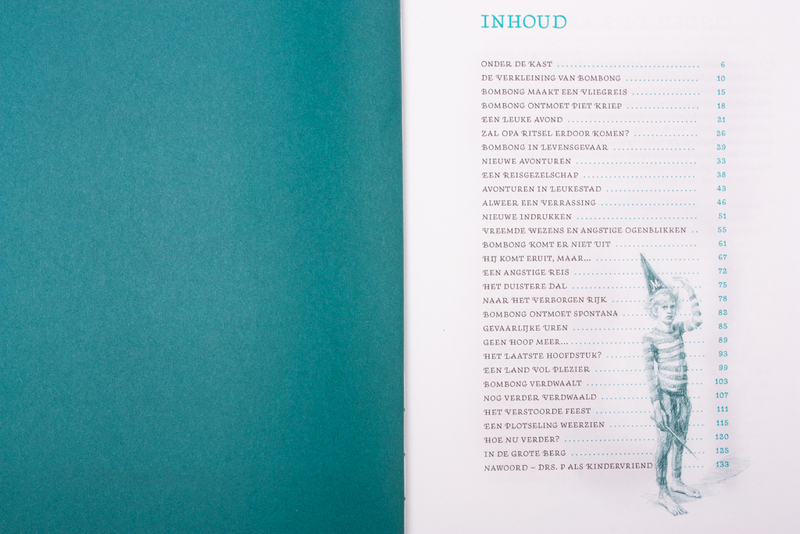 INHOUD
ONDER DE KAST 6
DE VERKLEINING VAN BOMBONG 10
BOMBONG MAAKT EEN VLIEGREIS 15
BOMBONG ONTMOET PIET KRIEP 18
EEN LEUKE AVOND 21
ZAL OPA RITSEL ERDOOR KOMEN? 26
BOMBONG IN LEVENSGEVAAR 29
NIEUWE AVONTUREN 33
EEN REISGEZELSCHAP 38
AVONTUREN IN LEUKESTAD 43
ALWEER EEN VERRASSING 46
NIEUWE INDRUKKEN 51
VREEMDE WEZENS EN ANGSTIGE OGENBLIKKEN 55
BOMBONG KOMT ER NIET UIT 61
HIJ KOMT ERUIT, MAAR... 67
EEN ANGSTIGE REIS 72
HET DUISTERE DAL 75
NAAR HET VERBORGEN RIJK 78
BOMBONG ONTMOET SPONTANA 82
GEVAARLIJKE UREN 85
GEEN HOOP MEER... 89
HET LAATSTE HOOFDSTUK? 93
EEN LAND VOL PLEZIER 99
BOMBONG VERDWAALT 103
NOG VERDER VERDWAALD 107
HET VERSTOORDE FEEST 111
EEN PLOTSELING WEERZIEN 115
HOE NU VERDER? 120
IN DE GROTE BERG 125
NAWOORD – DRS. P ALS KINDERVRIEND 133